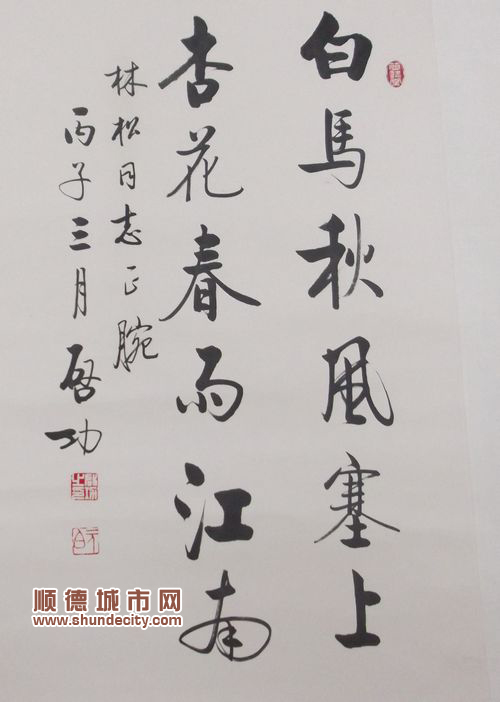 白馬秋風塞上
杏花春雨江南
林松同志正腕
丙子三月
啓功
顺德城市网
www.shundecity.com